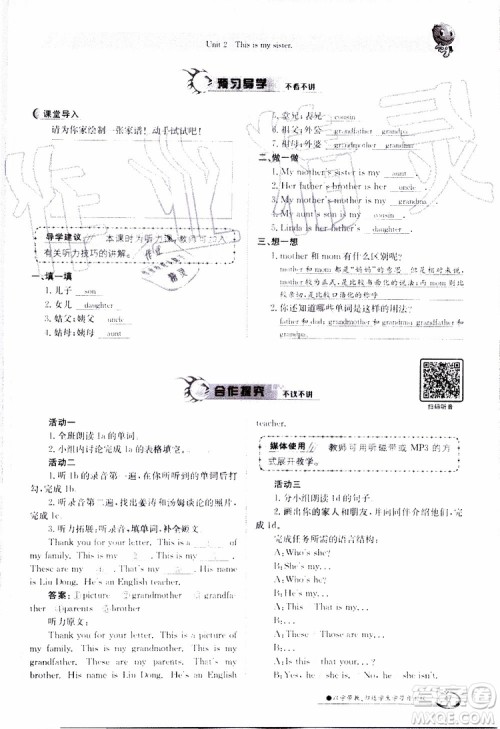 Unit 2 This is my sister.
预习导学 不看不讲
课堂导入
请为你家绘制一张家谱!动手试试吧!
导学建议 本课时为听力课,教师可加入
有关听力技巧的讲解。
一、填一填
1. 儿子 son
2. 女儿 daughter
3. 姑父;姨父 uncle
4. 姑母;姨母 aunt
5. 堂兄;表兄 cousin
6. 祖父;外公 grandfather grandpa
7. 祖母;外婆 grandmother grandma
二、做一做
1. My mother's sister is my aunt.
2. Her father's brother is her uncle.
3. His mother's mother is his
4. My mother's father is my grandpa.
5. Linda is her father's daughter.
三、想一想
1. mother 和 mom 有什么区别?
mother和mom都是“妈妈”的意思,但是
mother较为正式,mom是比较口语化的形式。
2. 你还知道哪些单词是这样的用法?
father和dad, grandfather和grandpa,
grandmother和grandma等。
合作探究 不议不讲
扫码听音
活动一
1. 全班朗读1a的单词。
2. 小组内讨论完成1a的表格。
活动二
1. 听1b的录音第一遍,在你所听到的单词
下划线,完成1b。
2. 听录音第二遍,找出姜涛和汤姆谈论的照片,
完成1c。
3. 听力拓展:听录音,填单词,完成短文。
Thank you for your letter. This is a 1
of my family. This is my 2 . This is my
grandfather. These are my 3 and 4 . This
is Liu Dong. He's an English teacher.
答案:①picture ②grandmother ③grandfather
④parents ⑤brother
听力原文:
Thank you for your letter. This is a picture of
my family. This is my grandmother. This is my
grandfather. These are my parents and my brother.
This is Liu Dong. He is my uncle. He's an English
teacher.
媒体使用 教师可用听磁带或MP3的方
式展开教学。
活动三
1. 分小组朗读1d的句子。
2. 画出你的家人和朋友,并谈论他们,完成
1d。
完成任务所需的语言结构:
A: Who's she?
B: She's my...
A: Who's he?
B: He's my...
A: Those This are my...
B: And That is my...
A: Is he/she your...?
B: Yes, he/she is. No, he/she isn't.